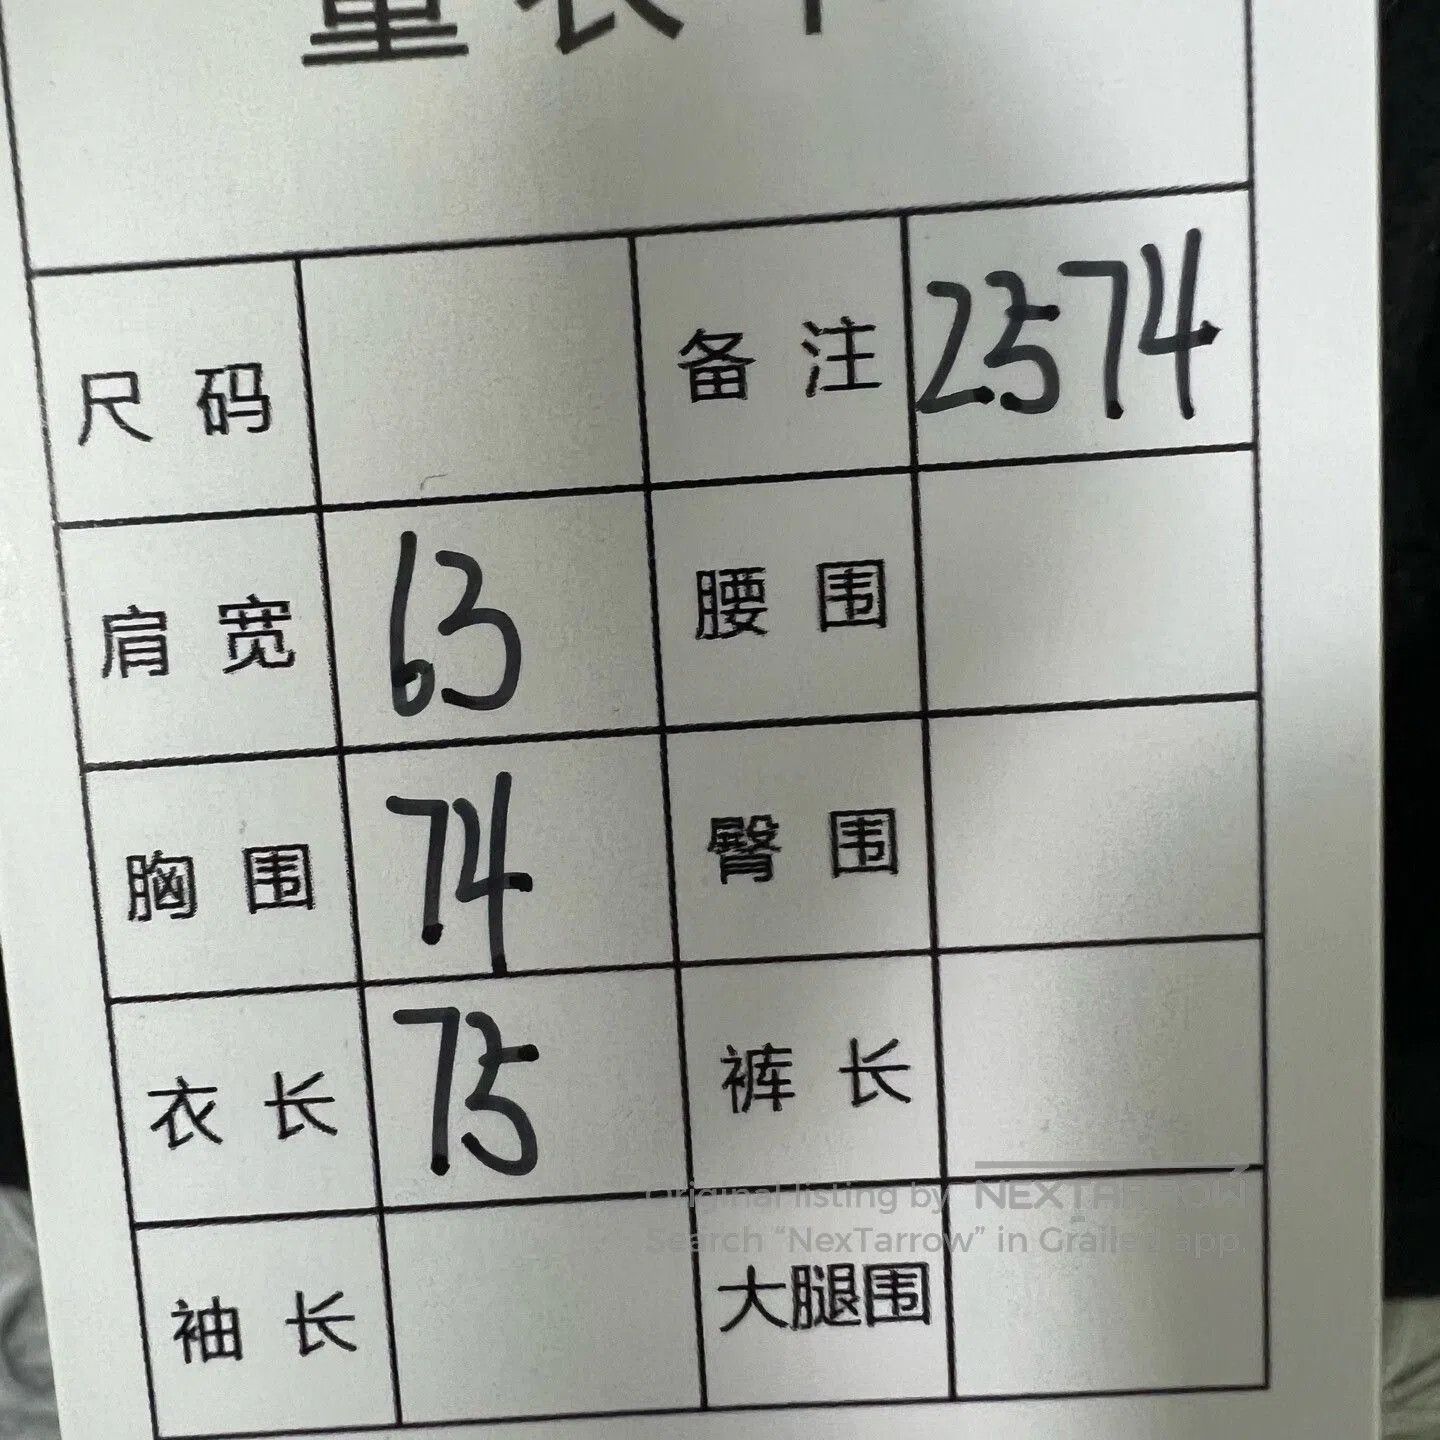 量衣卡
尺码 备注 2574
肩宽 63 腰围
胸围 74 臀围
衣长 75 裤长
Original listing by NEXTARROW
Search “NexTarrow” in Grailed app.
袖长 大腿围